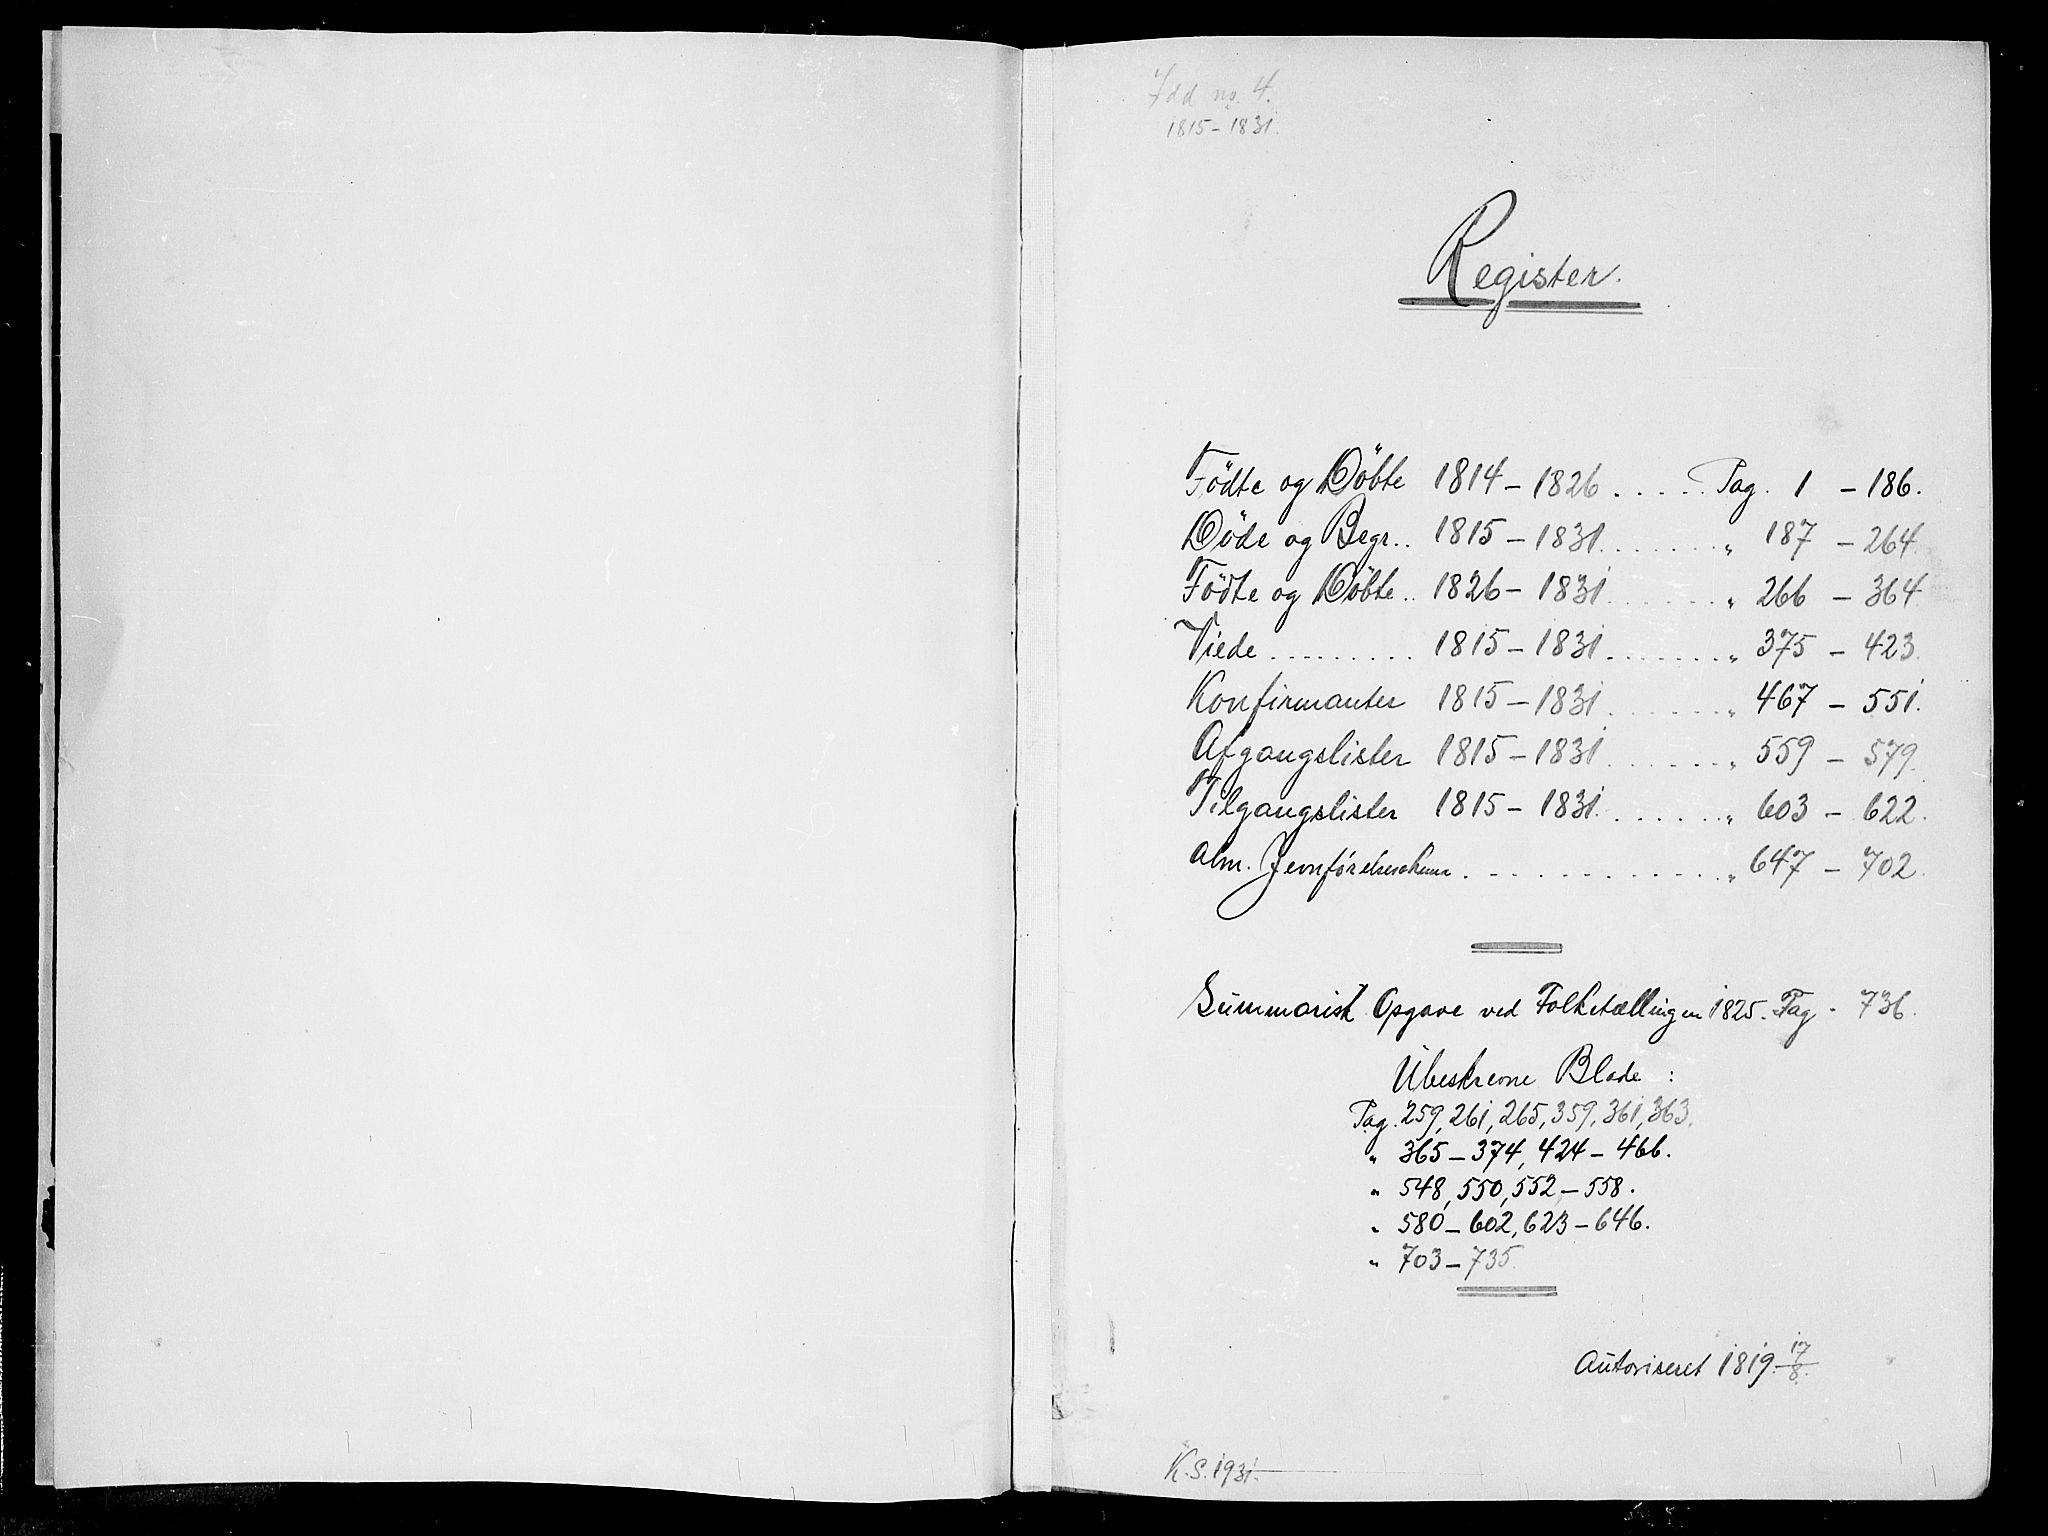 Idd no. 4.
1815-1831.
Register.
Födte og Döbte 1814-1826 ..... Pag. 1 - 186.
Döde og Begr.. 1815-1831 ....... " 187 - 264.
Födte og Döbte.. 1826-1831 ....... " 266 - 364
Viede ......... 1815-1831 ....... " 375 - 423.
Konfirmanter 1815-1831 ....... " 467 - 551.
Afgangslister 1815-1831 ....... " 559 - 579.
Tilgangslister 1815-1831 ....... " 603 - 622.
Alm. Jevnførelseschema ............. " 647 - 702.
Summarisk Opgave ved Folketællingen 1825. Pag. 736.
Ubeskrevne Blade :
Pag. 259, 261, 265, 359, 361, 363.
" 365-374, 424-466.
" 548, 550, 552-558.
" 580-602, 623-646.
" 703-735.
Autoriseret 1819 17/8.
K.S. 1931.